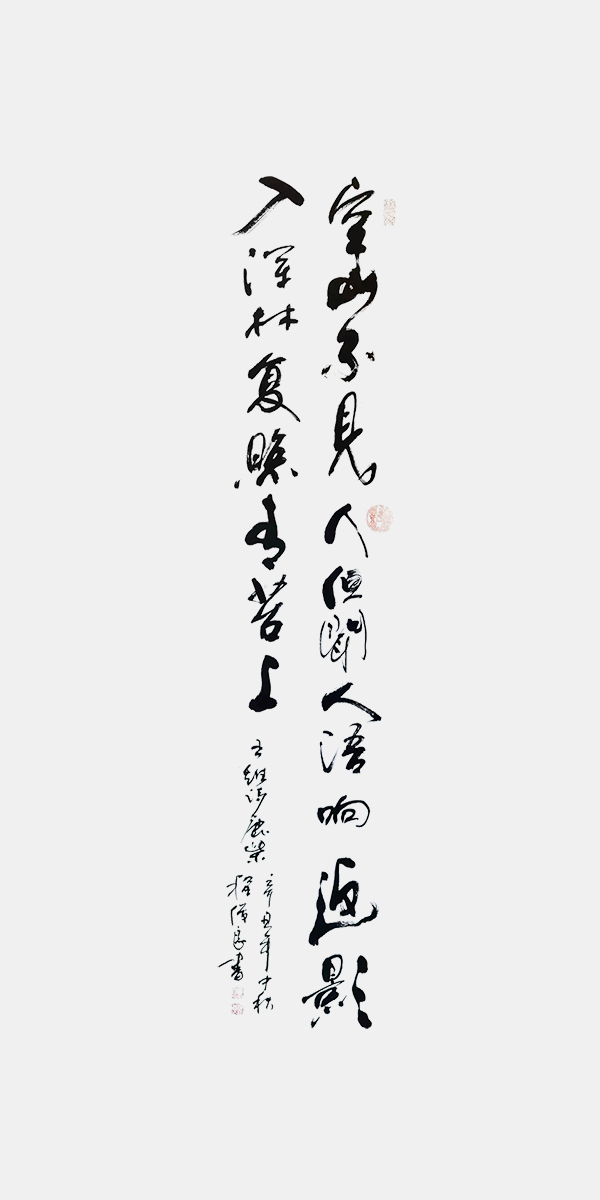 空山不見人但聞人語响返影
入深林复照青苔上
王維詩鹿柴
辛丑年中秋
書